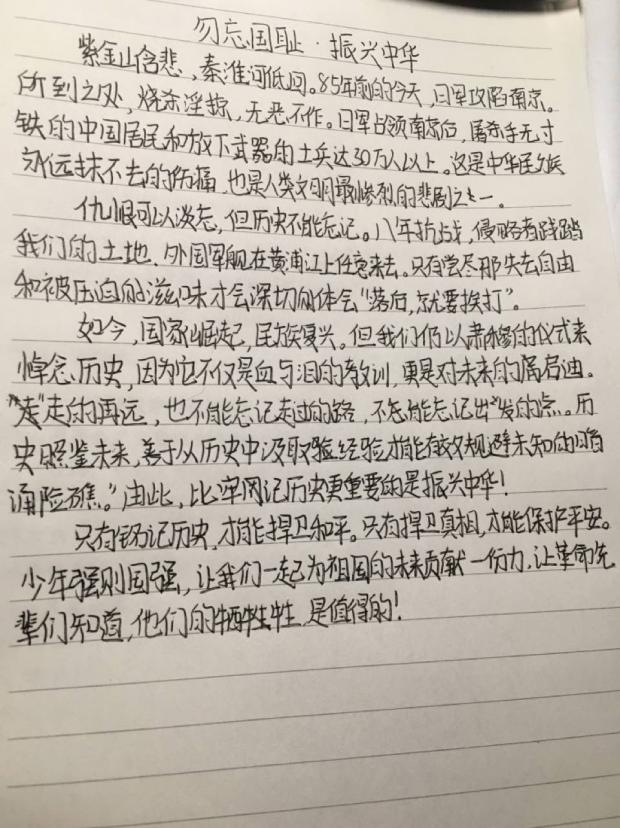 勿忘国耻·振兴中华
紫金山含悲,秦淮河低回。85年前的今天,日军攻陷南京。
所到之处,烧杀淫掠、无恶不作。日军占领南京后,屠杀手无寸
铁的中国居民和放下武器的士兵达30万人以上。这是中华民族
永远抹不去的伤痛,也是人类文明最惨烈的悲剧之一。
仇恨可以淡忘,但历史不能忘记。八年抗战,侵略者践踏
我们的土地、外国军舰在黄浦江上任意来去。只有尝尽那失去自由
和被压迫的滋味才会深切的体会“落后,就要挨打”。
如今,国家崛起,民族复兴。但我们仍以肃穆的仪式来
悼念历史,因为它不仅是血与泪的教训,更是对未来的启迪。
“走的再远,也不能忘记走过的路,不能忘记出发的点。历
史照鉴未来,善于从历史中汲取经验才能有效规避未知的
涌险礁。”由此,比牢记历史更重要的是振兴中华!
只有铭记历史,才能捍卫和平。只有捍卫真相,才能保护平安。
少年强则国强,让我们一起为祖国的未来贡献一份力,让革命先
辈们知道,他们的牺牲是值得的!